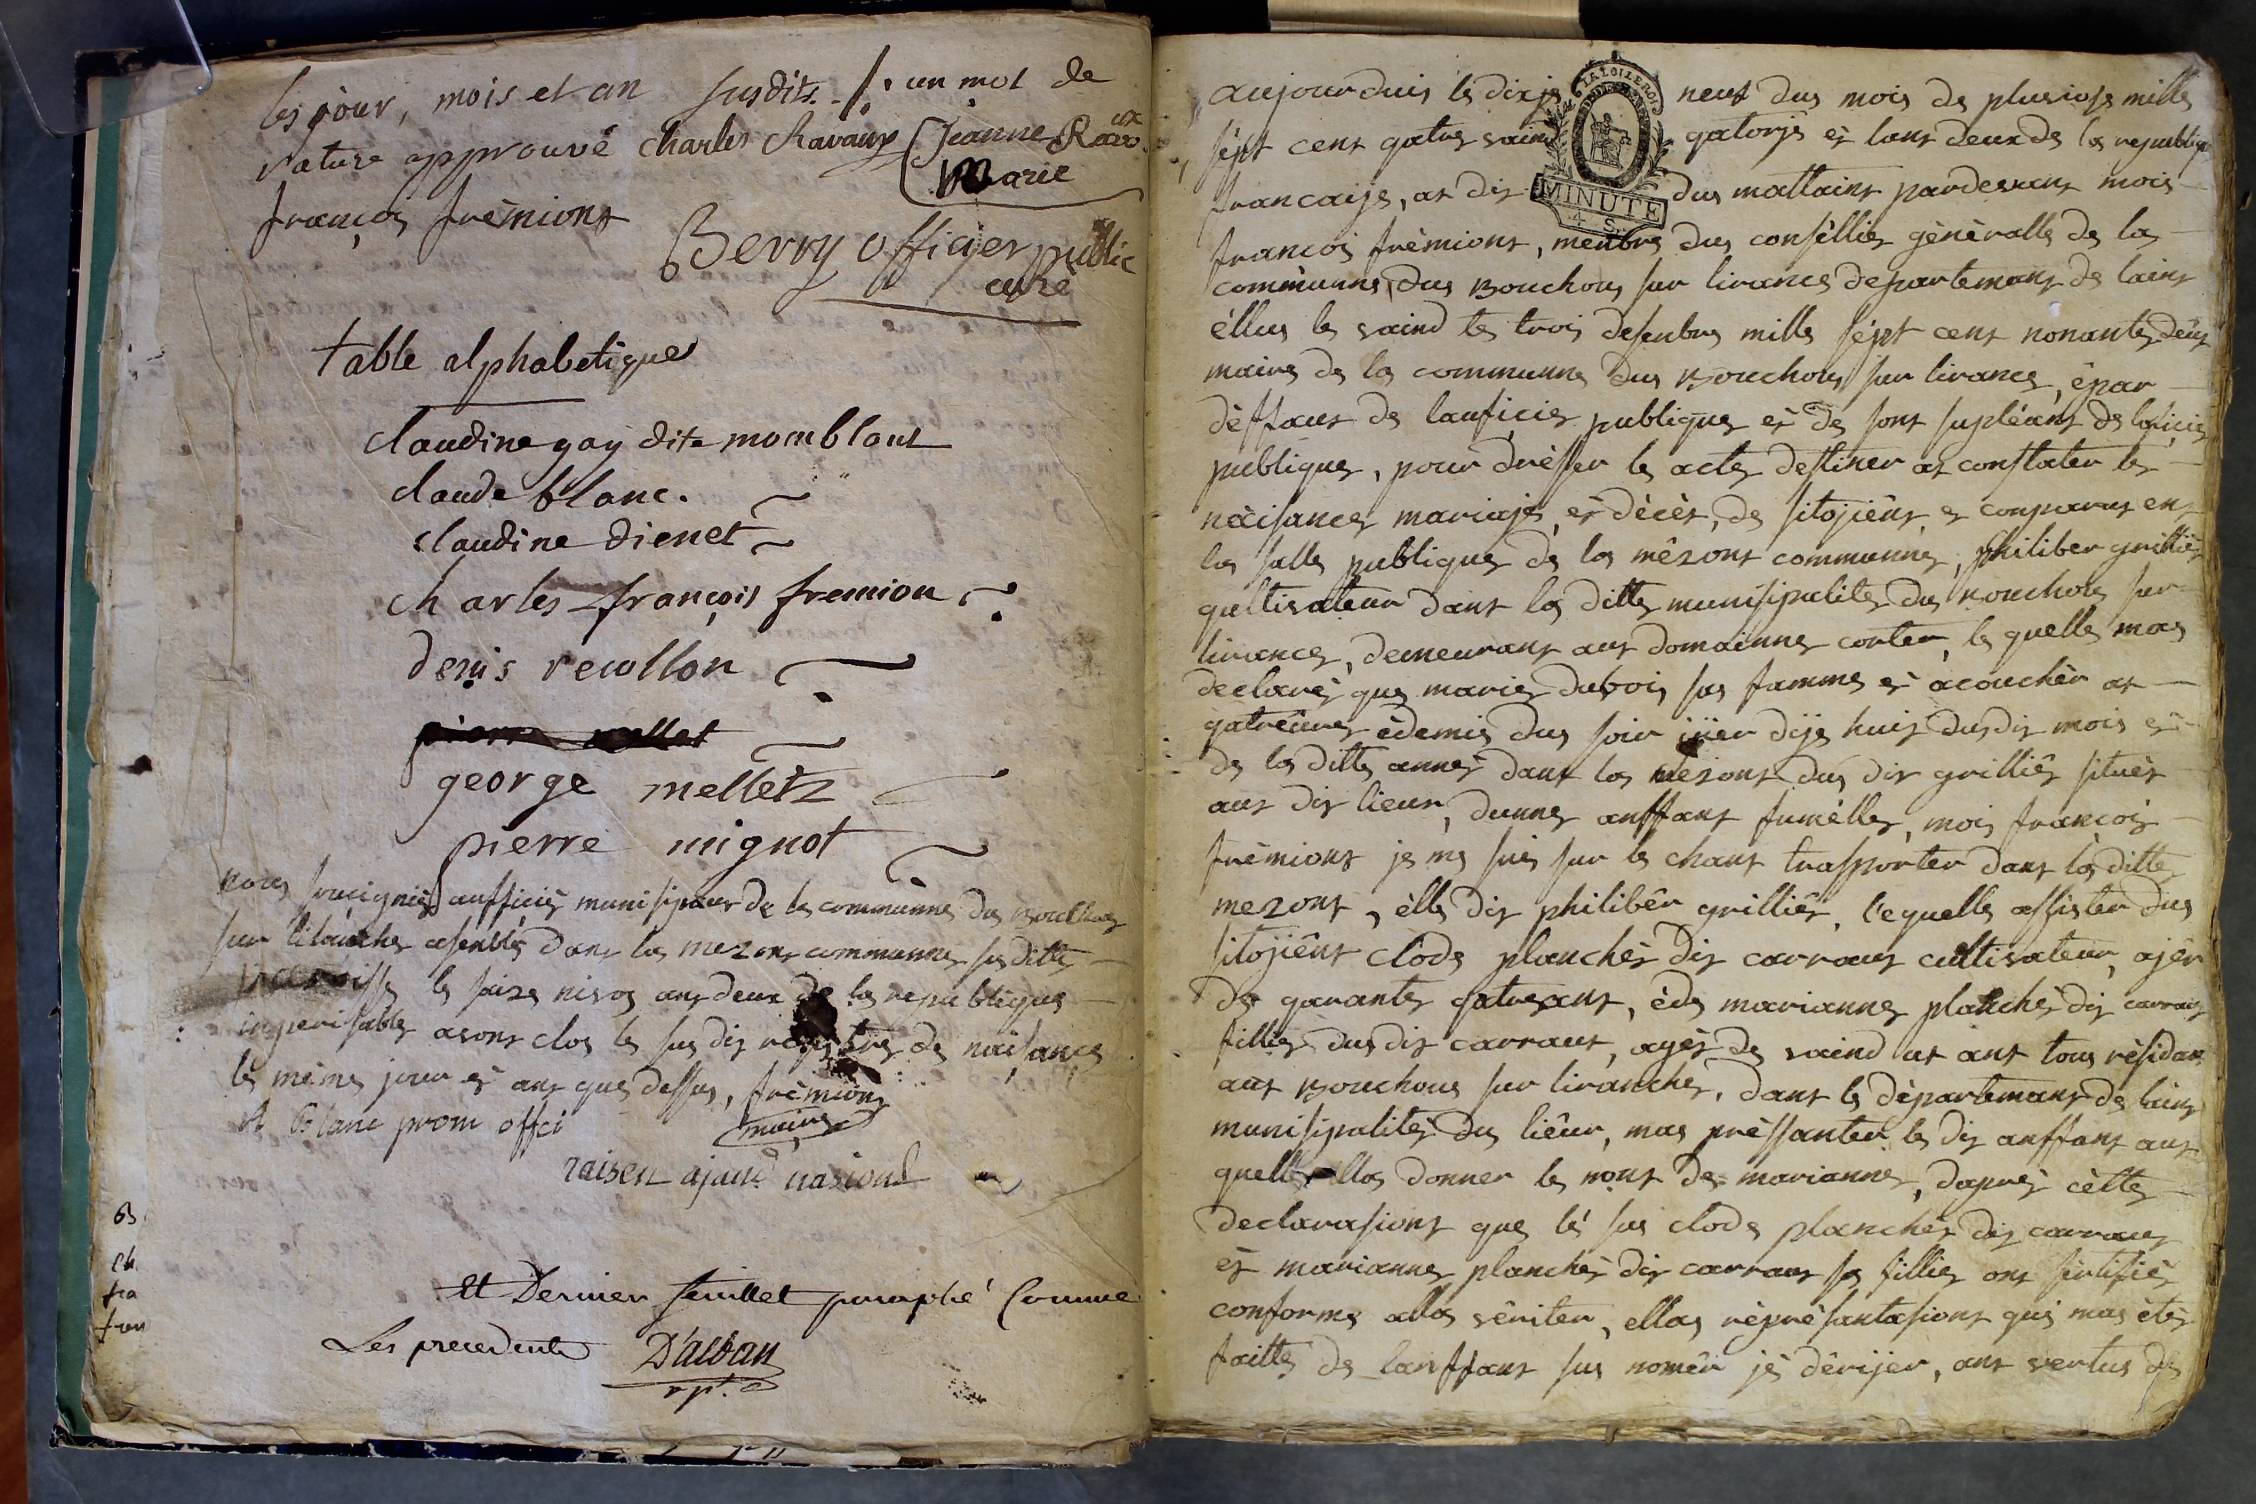 les jour, mois et an susdits ./. un mot de
rature approuvé charles Ravaux Jeanne Marie Ravaux
françois frèmiont
Berry officier public
curé
table alphabetique
claudine gay dite momblant
claude blanc.
claudine dienet
charles françois fremion
denis revollon
george melletz
pierre mignot
nous soucignier aufficier munisipaux de la commùnne du Bouchou
sur asenblés dans la mezont communne susditte
les saize nivos ant deux de la republique
inperisable avont clos les sus dit registre de naisance
les mème jour et ant que dessus, frèmiont
maire
A Blanc prom offci
raisen ajand nasional
et Dernier feuillet paraphé Comme
Les precedents D'alban
rpt.
B
ch
fra
fran
LA LOI LE ROI
MINUTE
4 S.
aujourduis le dixje neuf dus mois de plusiose mille
sèpt cens qatre vaind qatorje et lant deux de la republique
francaije, at dix dus mattaint pardevant mois
francois frèmiont, menbre dus consèillier gènèralle de la
commùnne dus Bouchou sur livance departemant de laint
èllus le vaind te trois desenbre mille sèpt cent nonante deux
maire de la communne dus Bouchou sur livance, èpar
dèffaut de laufficier publique et de sont suplèant de loficier
publique, pour drèsser les acte destiner at constater les
nàisance mariaje, et dècèt, de sitojient, et conparut en
la salle publique de la mèzont communne, philiber grillier
qultivateur dant la ditte munisipalite dus Bouchou sur
livance, demeurant aut domainne conter, le quelle mas
declarèr que marie dubois sas famme et acouchèr at
qatreûre èdemis dus soir jier dije huit dusdit mois et
de la ditte annèe dant la mezont dus dit grillièr situèr
aut dit lieur, dunne anffant fumèlle, mois francois
frèmiont je me suis sur le chant trasporter dant la ditte
mezont, èlle dit philibèr grillièr, lequelle assister dus
sitojiènt clôde planchè dit carraut cultivateur, ajèr
de qarante qatreant, ède marianne planchè dit carraut
fillie dusdit carraut, ajèr de vaind ut ant tous rèsidant
aut Bouchou sur livanche, dant le dèpartemant de laint
munisipalite dus lièur, mas prèssanter le dit anffant aut
quelle ellas donner le nont de marianne, daprèt cètte
declarasiont que lè sus clode planchèr dit carraut
et marianne planchè dit carraut sa fillie ont sèrtifièr
conforme allas vèriter, ellas rèprèsantasiont qui mas ètèr
faitte de lanffant sus nomèr jè dèrijer, ant vertus des